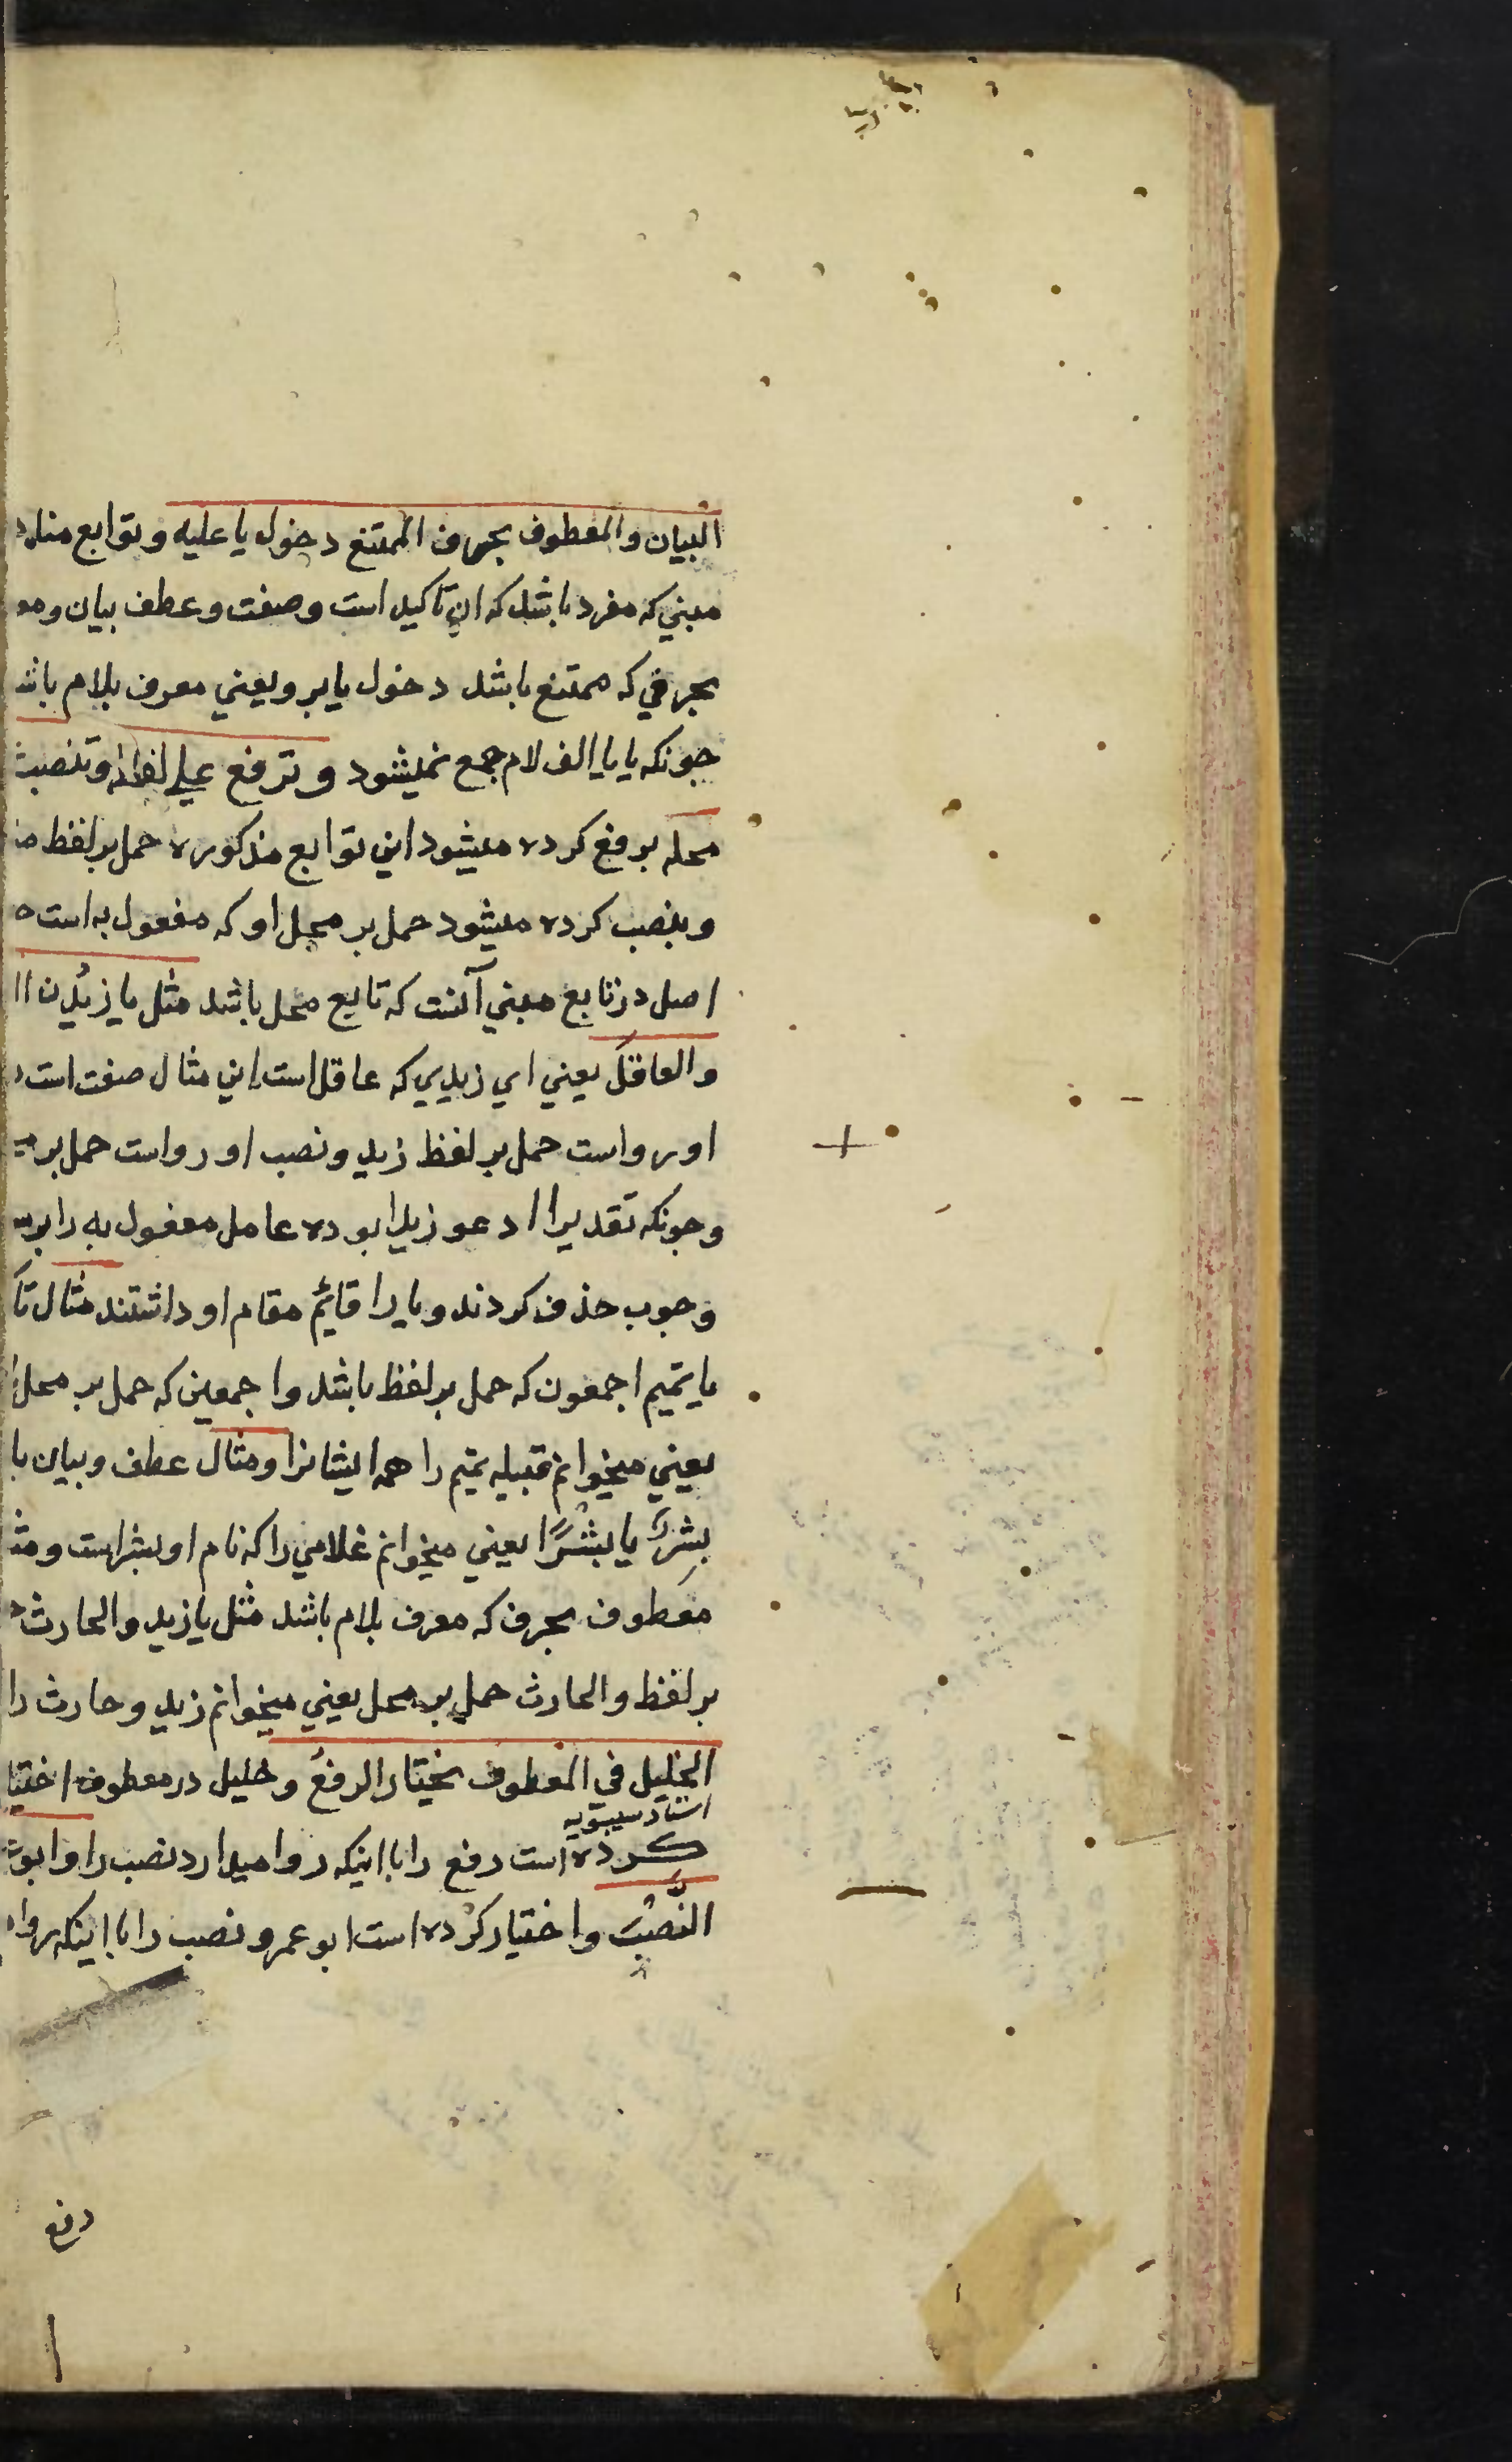 البيان والمعطوف بحرف الممتنع دخول يا عليه وتوابع مناد
مبني که مفرد باشد که ان تاکيد است وصفت وعطف بيان ومع
بحرفي که ممتنع باشد دخول يا برو يعني معرف بلام باش
جونکه يا با الف لام جمع نميشود وترفع علي لفظه وتنصب
محله برفع کرده ميشود اين توابع مذکوره حمل بر لفظ
وبنصب کرده ميشود حمل بر محل او که مفعول به است
اصل در تابع مبني آنست که تابع محل باشد مثل يا زيدن
والعاقل يعني اي زيدي که عاقل است اين مثال صفت است
او رواست حمل بر لفظ زيد ونصب او رواست حمل بر
وجونکه تقدير ا ادعو زيدا بوده عامل مفعول به را بر
وجوب حذف کردند ويا را قائم مقام او داشتند مثال تا
يا تميم اجمعون که حمل بر لفظ باشد واجمعين که حمل بر محل
يعني ميخوانم قبيله تميم را همه ايشانرا ومثال عطف وبيان يا
بشر يا بشرا يعني ميخوانم غلامي را که نام او بشر است ومث
معطوف بحرف که معرف بلام باشد مثل يا زيد والحارث
بر لفظ والحارث حمل بر محل يعني ميخوانم زيد وحارث را
الخليل في المعطوف يختار الرفع وخليل در معطوف اختيا
استاد سيبويه
کرده است رفع را با اينکه روا ميدارد نصب را وابو
النصب واختيار کرده است ابو عمرو نصب را با اينکه روا